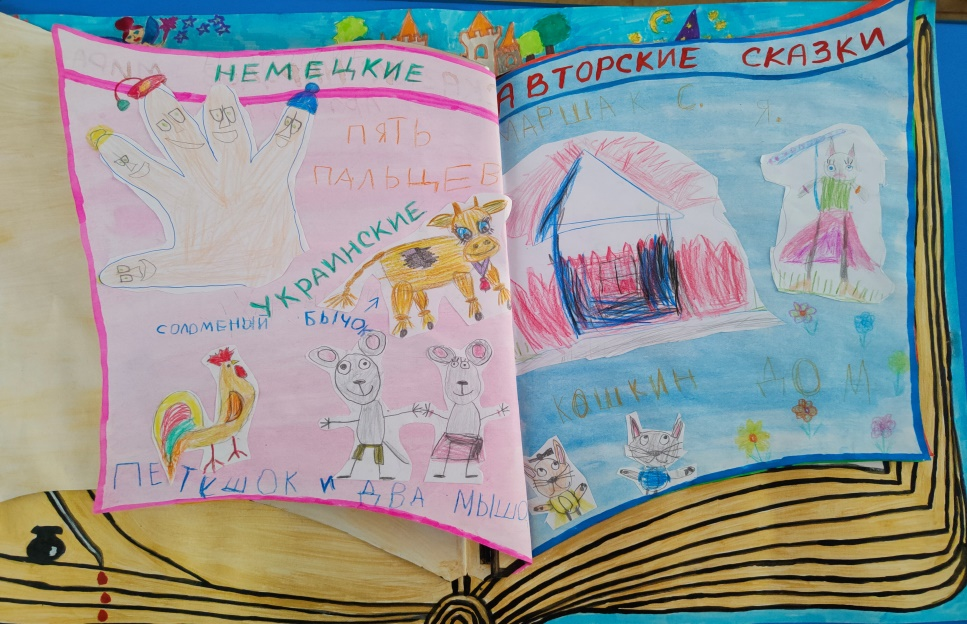 НЕМЕЦКИЕ
ПЯТЬ
ПАЛЬЦЕВ
УКРАИНСКИЕ
СОЛОМЕНЫЙ БЫЧОК
ПЕТУШОК И ДВА МЫШО
АВТОРСКИЕ СКАЗКИ
МАРШАК С. Я.
КОШКИН ДОМ